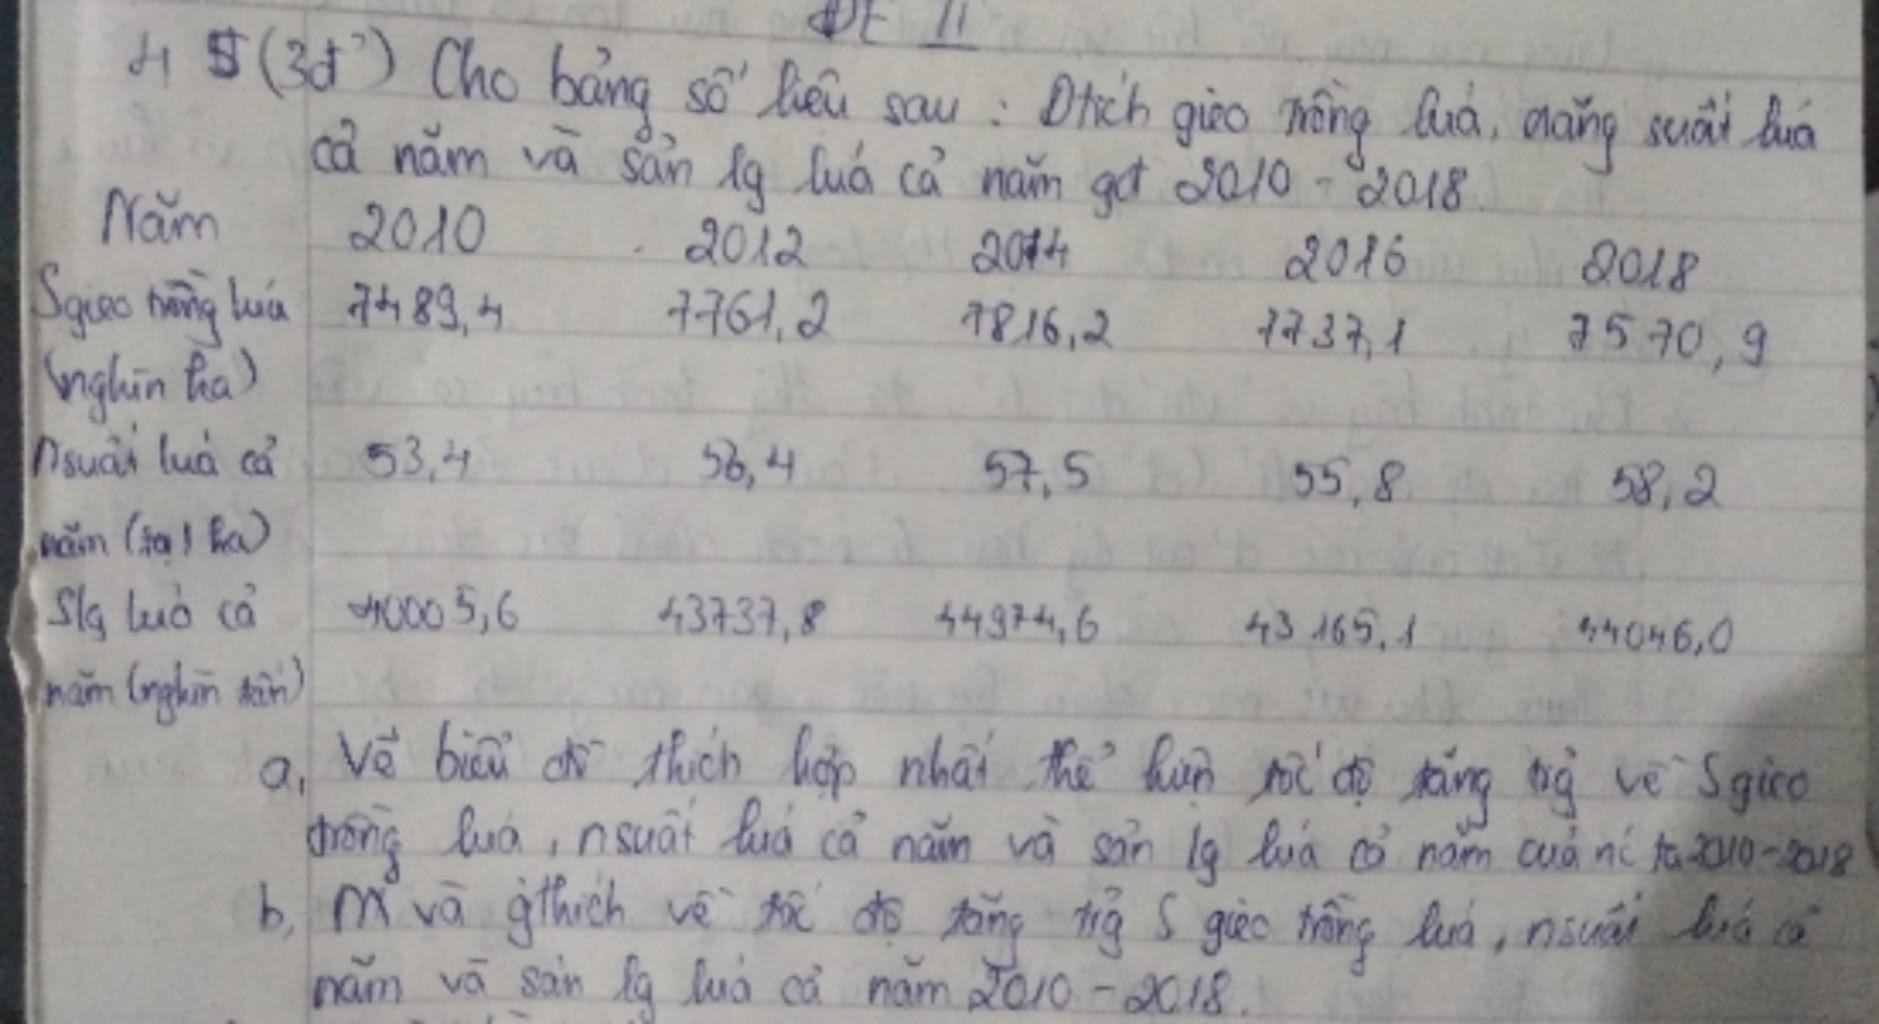 ĐỀ II
4 5 (3đ') Cho bảng số liệu sau : Dtích gieo trồng lúa, năng suất lúa
cả năm và sản lg lúa cả năm gđ 2010 - 2018.
Năm 2010 2012 2014 2016 2018
S gieo trồng lúa 7489,4 7761,2 7816,2 7737,1 7570,9
(nghìn ha)
Nsuất lúa cả 53,4 56,4 57,5 55,8 58,2
năm (tạ / ha)
Slg lúa cả 40005,6 43737,8 44974,6 43165,1 44046,0
năm (nghìn tấn)
a, Vẽ biểu đồ thích hợp nhất thể hiện tốc độ tăng trg về S gieo
trồng lúa, nsuất lúa cả năm và sản lg lúa cả năm của nc ta 2010-2018
b, Nx và gthích về tốc độ tăng trg S gieo trồng lúa, nsuất lúa cả
năm và sản lg lúa cả năm 2010 - 2018.